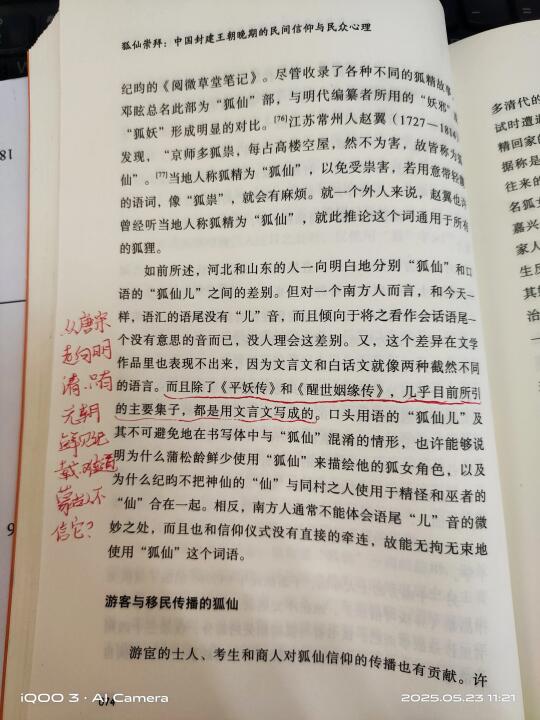 狐仙崇拜：中国封建王朝晚期的民间信仰与民众心理
纪昀的《阅微草堂笔记》。尽管收录了各种不同的狐精故事
邓眩总名此部为“狐仙”部，与明代编纂者所用的“妖邪”
“狐妖”形成明显的对比。[76]江苏常州人赵翼（1727—1814）
发现，“京师多狐祟，每占高楼空屋，然不为害，故皆称为狐
仙”。[77]当地人称狐精为“狐仙”，以免受祟害，若用意带轻蔑
的语词，像“狐祟”，就会有麻烦。就一个外人来说，赵翼也许
曾经听当地人称狐精为“狐仙”，就此推论这个词通用于所有
的狐狸。
如前所述，河北和山东的人一向明白地分别“狐仙”和口
语的“狐仙儿”之间的差别。但对一个南方人而言，和今天一
样，语汇的语尾没有“儿”音，而且倾向于将之看作会话语尾一
个没有意思的音而已，没人理会这差别。又，这个差异在文学
作品里也表现不出来，因为文言文和白话文就像两种截然不同
的语言。而且除了《平妖传》和《醒世姻缘传》，几乎目前所引
的主要集子，都是用文言文写成的。口头用语的“狐仙儿”及
其不可避免地在书写体中与“狐仙”混淆的情形，也许能够说
明为什么蒲松龄鲜少使用“狐仙”来描绘他的狐女角色，以及
为什么纪昀不把神仙的“仙”与同村之人使用于精怪和巫者的
“仙”合在一起。相反，南方人通常不能体会语尾“儿”音的微
妙之处，而且也和信仰仪式没有直接的牵连，故能无拘无束地
使用“狐仙”这个词语。
游客与移民传播的狐仙
游宦的士人、考生和商人对狐仙信仰的传播也有贡献。许
074
从唐宋
走向明
清，只有
元朝
鲜见纪
载，难道
蒙古不
信它？
多清代的
试时遭遇
精回家的
据称是
往来的
名狐女
嘉兴
家人
生反
其
18
9
iQOO 3 · AI Camera
2025.05.23 11:21